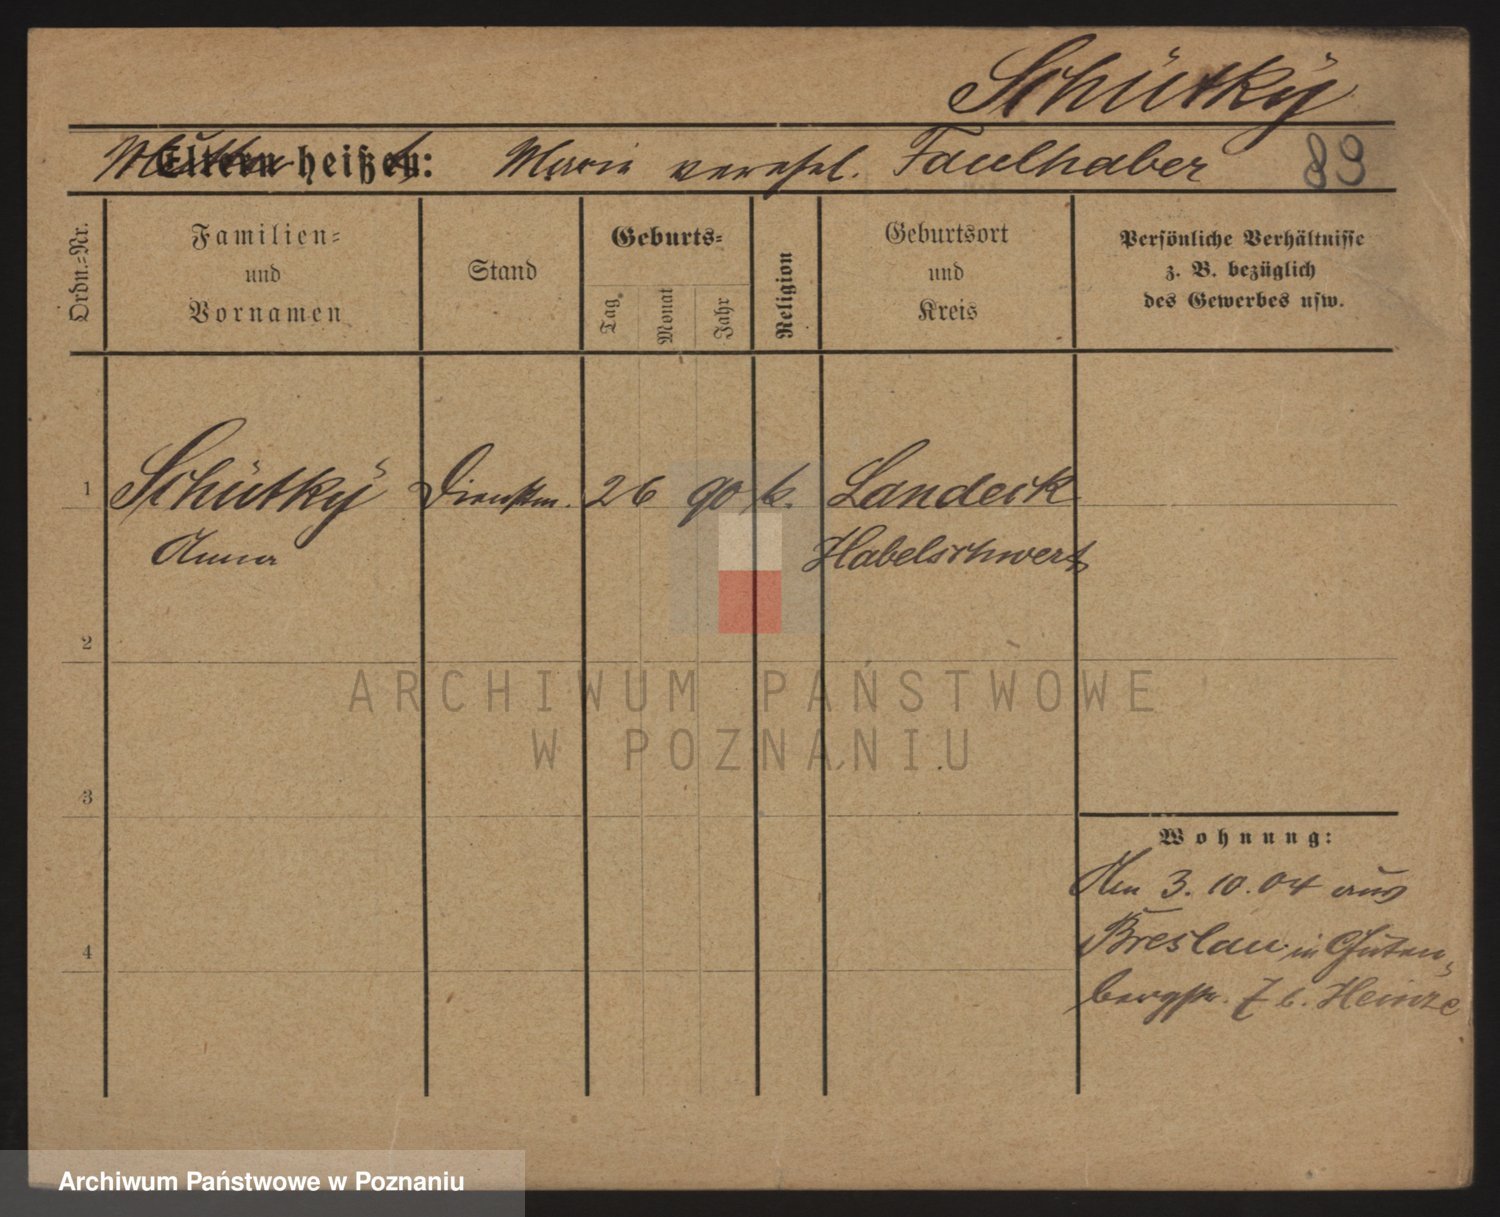 Schütky
Mutter heißt: Marie verehel. Faulhaber 89
Ordn.=Nr.
Familien=
und
Vornamen
Stand
Geburts=
Tag
Monat
Jahr
Religion
Geburtsort
und
Kreis
Persönliche Verhältnisse
z. B. bezüglich
des Gewerbes usw.
1 Schütky Dienstm. 26 90 k. Landeck
Anna Habelschwert
2
3
4
Wohnung:
Am 3. 10. 04 aus
Breslau in Guten-
bergstr. 7 b. Heinze
ARCHIWUM PAŃSTWOWE
W POZNANIU
Archiwum Państwowe w Poznaniu